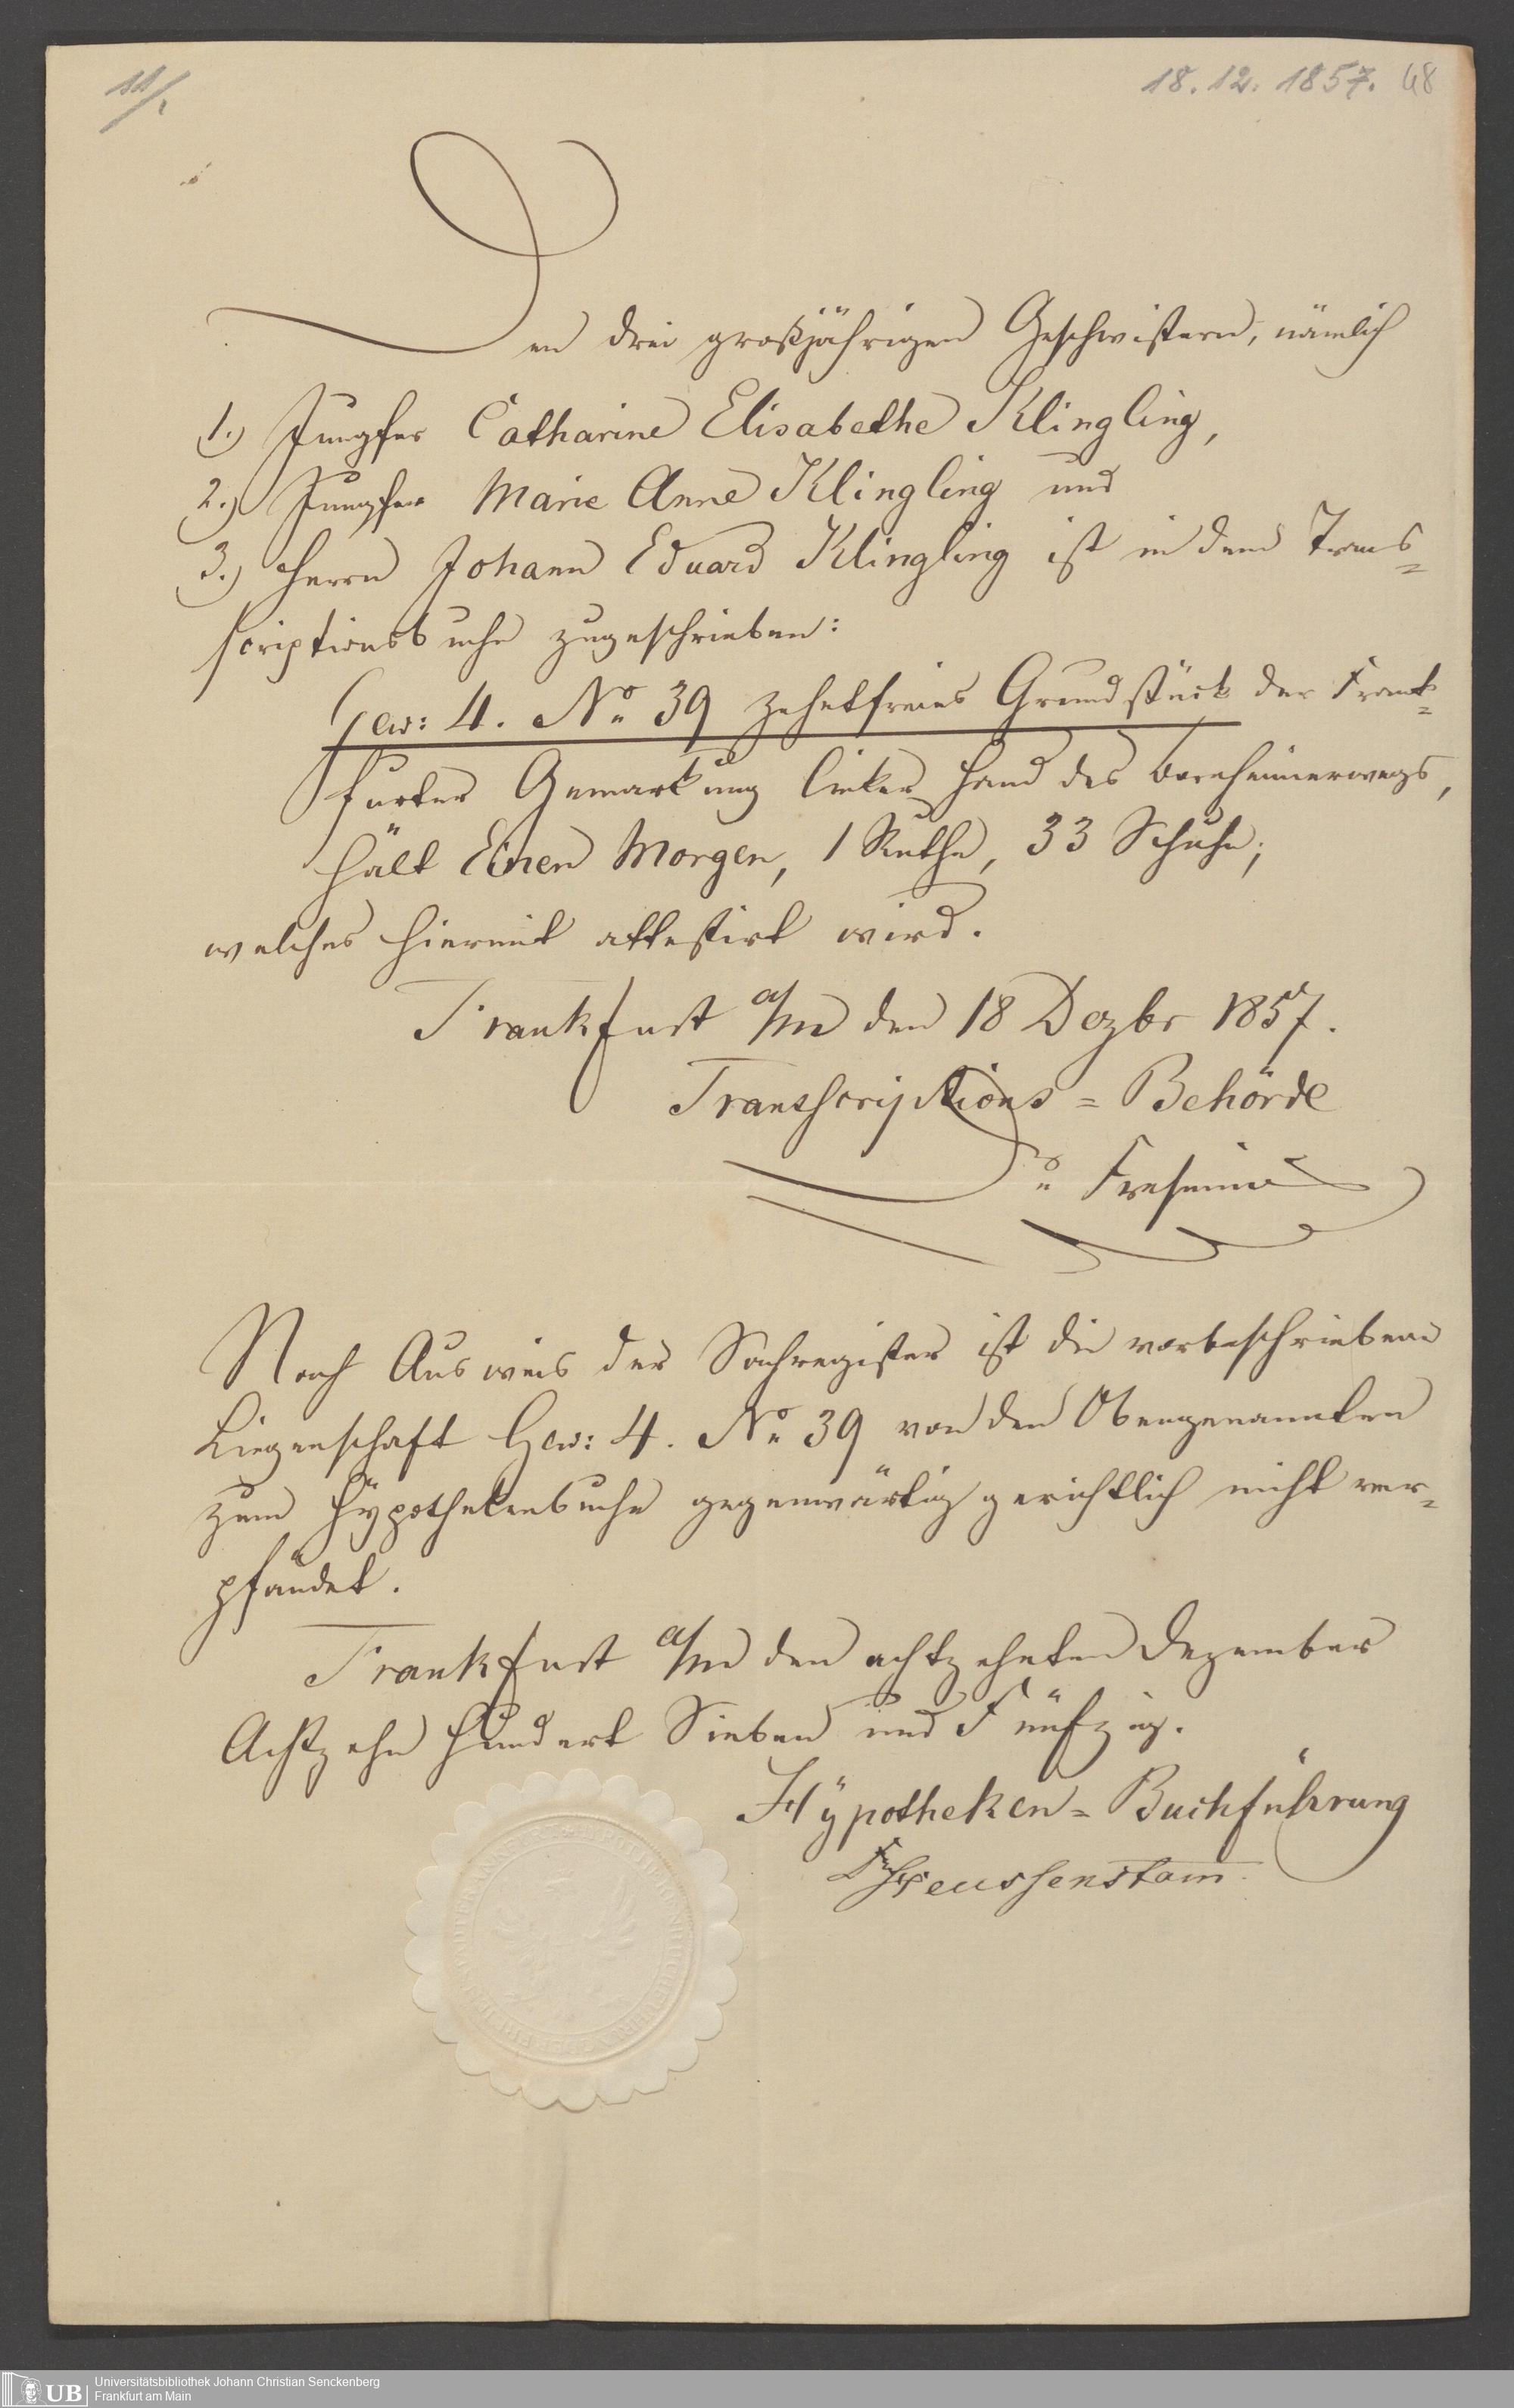 11/1
18.12.1857. 48
Den drei großjährigen Geschwistern, nämlich
1.) Jungfer Catharine Elisabethe Klingling,
2.) Jungfer Marie Anne Klingling und
3.) Herrn Johann Eduard Klingling ist in dem Trans=
scriptionsbuche zugeschrieben:
Gew: 4. No 39 zehntfreies Grundstück der Frank=
furter Gemarkung linker Hand des Bornheimerwegs,
hält Einen Morgen, 1 Ruthe, 33 Schuhe;
welches hiermit attestirt wird.
Frankfurt a/m den 18 Dezbr 1857.
Transscriptions=Behörde
Dr. Fresenius
Nach Ausweis der Sachregister ist die vorbeschriebene
Liegenschaft Gew: 4. No 39 von den Obengenannten
zum Hÿpothekenbuche gegenwärtig gerichtlich nicht ver=
pfändet.
Frankfurt a/m den achtzehnten Dezember
Achtzehn Hundert Sieben und Fünfzig.
Hÿpotheken=Buchführung
Heussenstam
UB
Universitätsbibliothek Johann Christian Senckenberg
Frankfurt am Main